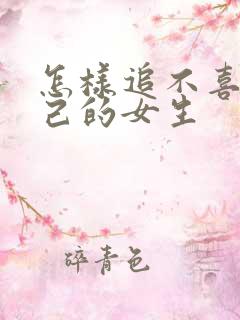 怎样追不喜
己的女生
碎青色